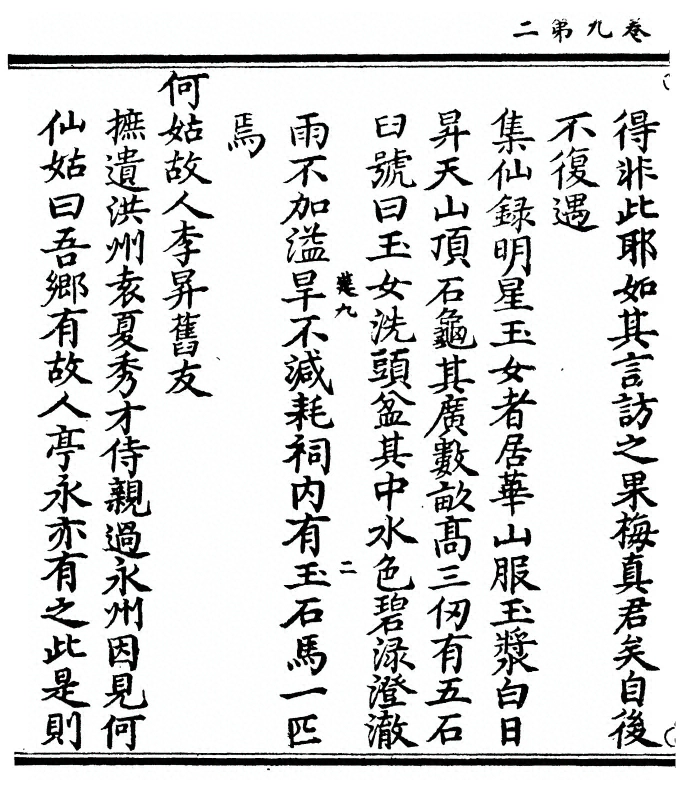 卷九第二
得非此耶如其言訪之果梅真君矣自後
不復遇
集仙録明星玉女者居華山服玉漿白日
昇天山頂石龜其廣數畝高三仞有五石
臼號曰玉女洗頭盆其中水色碧渌澄澈
雨不加溢旱不減耗祠内有玉石馬一匹
焉
何姑故人李昇舊友
摭遺洪州袁夏秀才侍親過永州因見何
仙姑曰吾鄉有故人亭永亦有之此是則
九
二